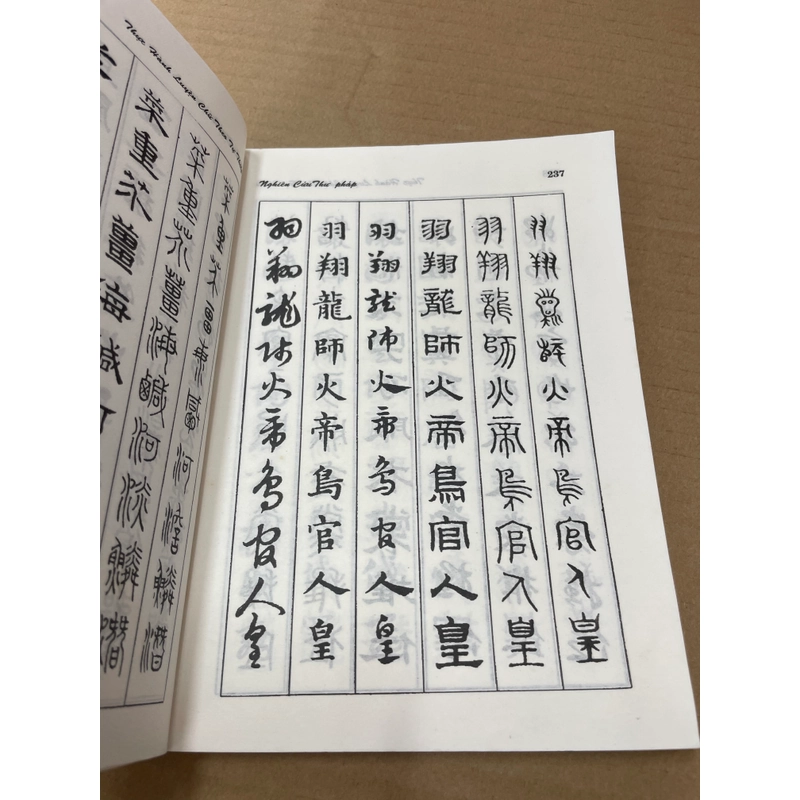 Thực Hành Luyện Chữ Theo Tự
菜重芥薑海鹹河
菜重芥薑海鹹河淡鱗潛
菜重芥薑海鹹河淡鱗潛
Nghiên Cứu Thư pháp
237
羽翔龍師火帝鳥官人皇
羽翔龍師火帝鳥官人皇
羽翔龍師火帝鳥官人皇
羽翔龍師火帝鳥官人皇
羽翔龍師火帝鳥官人皇
羽翔龍師火帝鳥官人皇